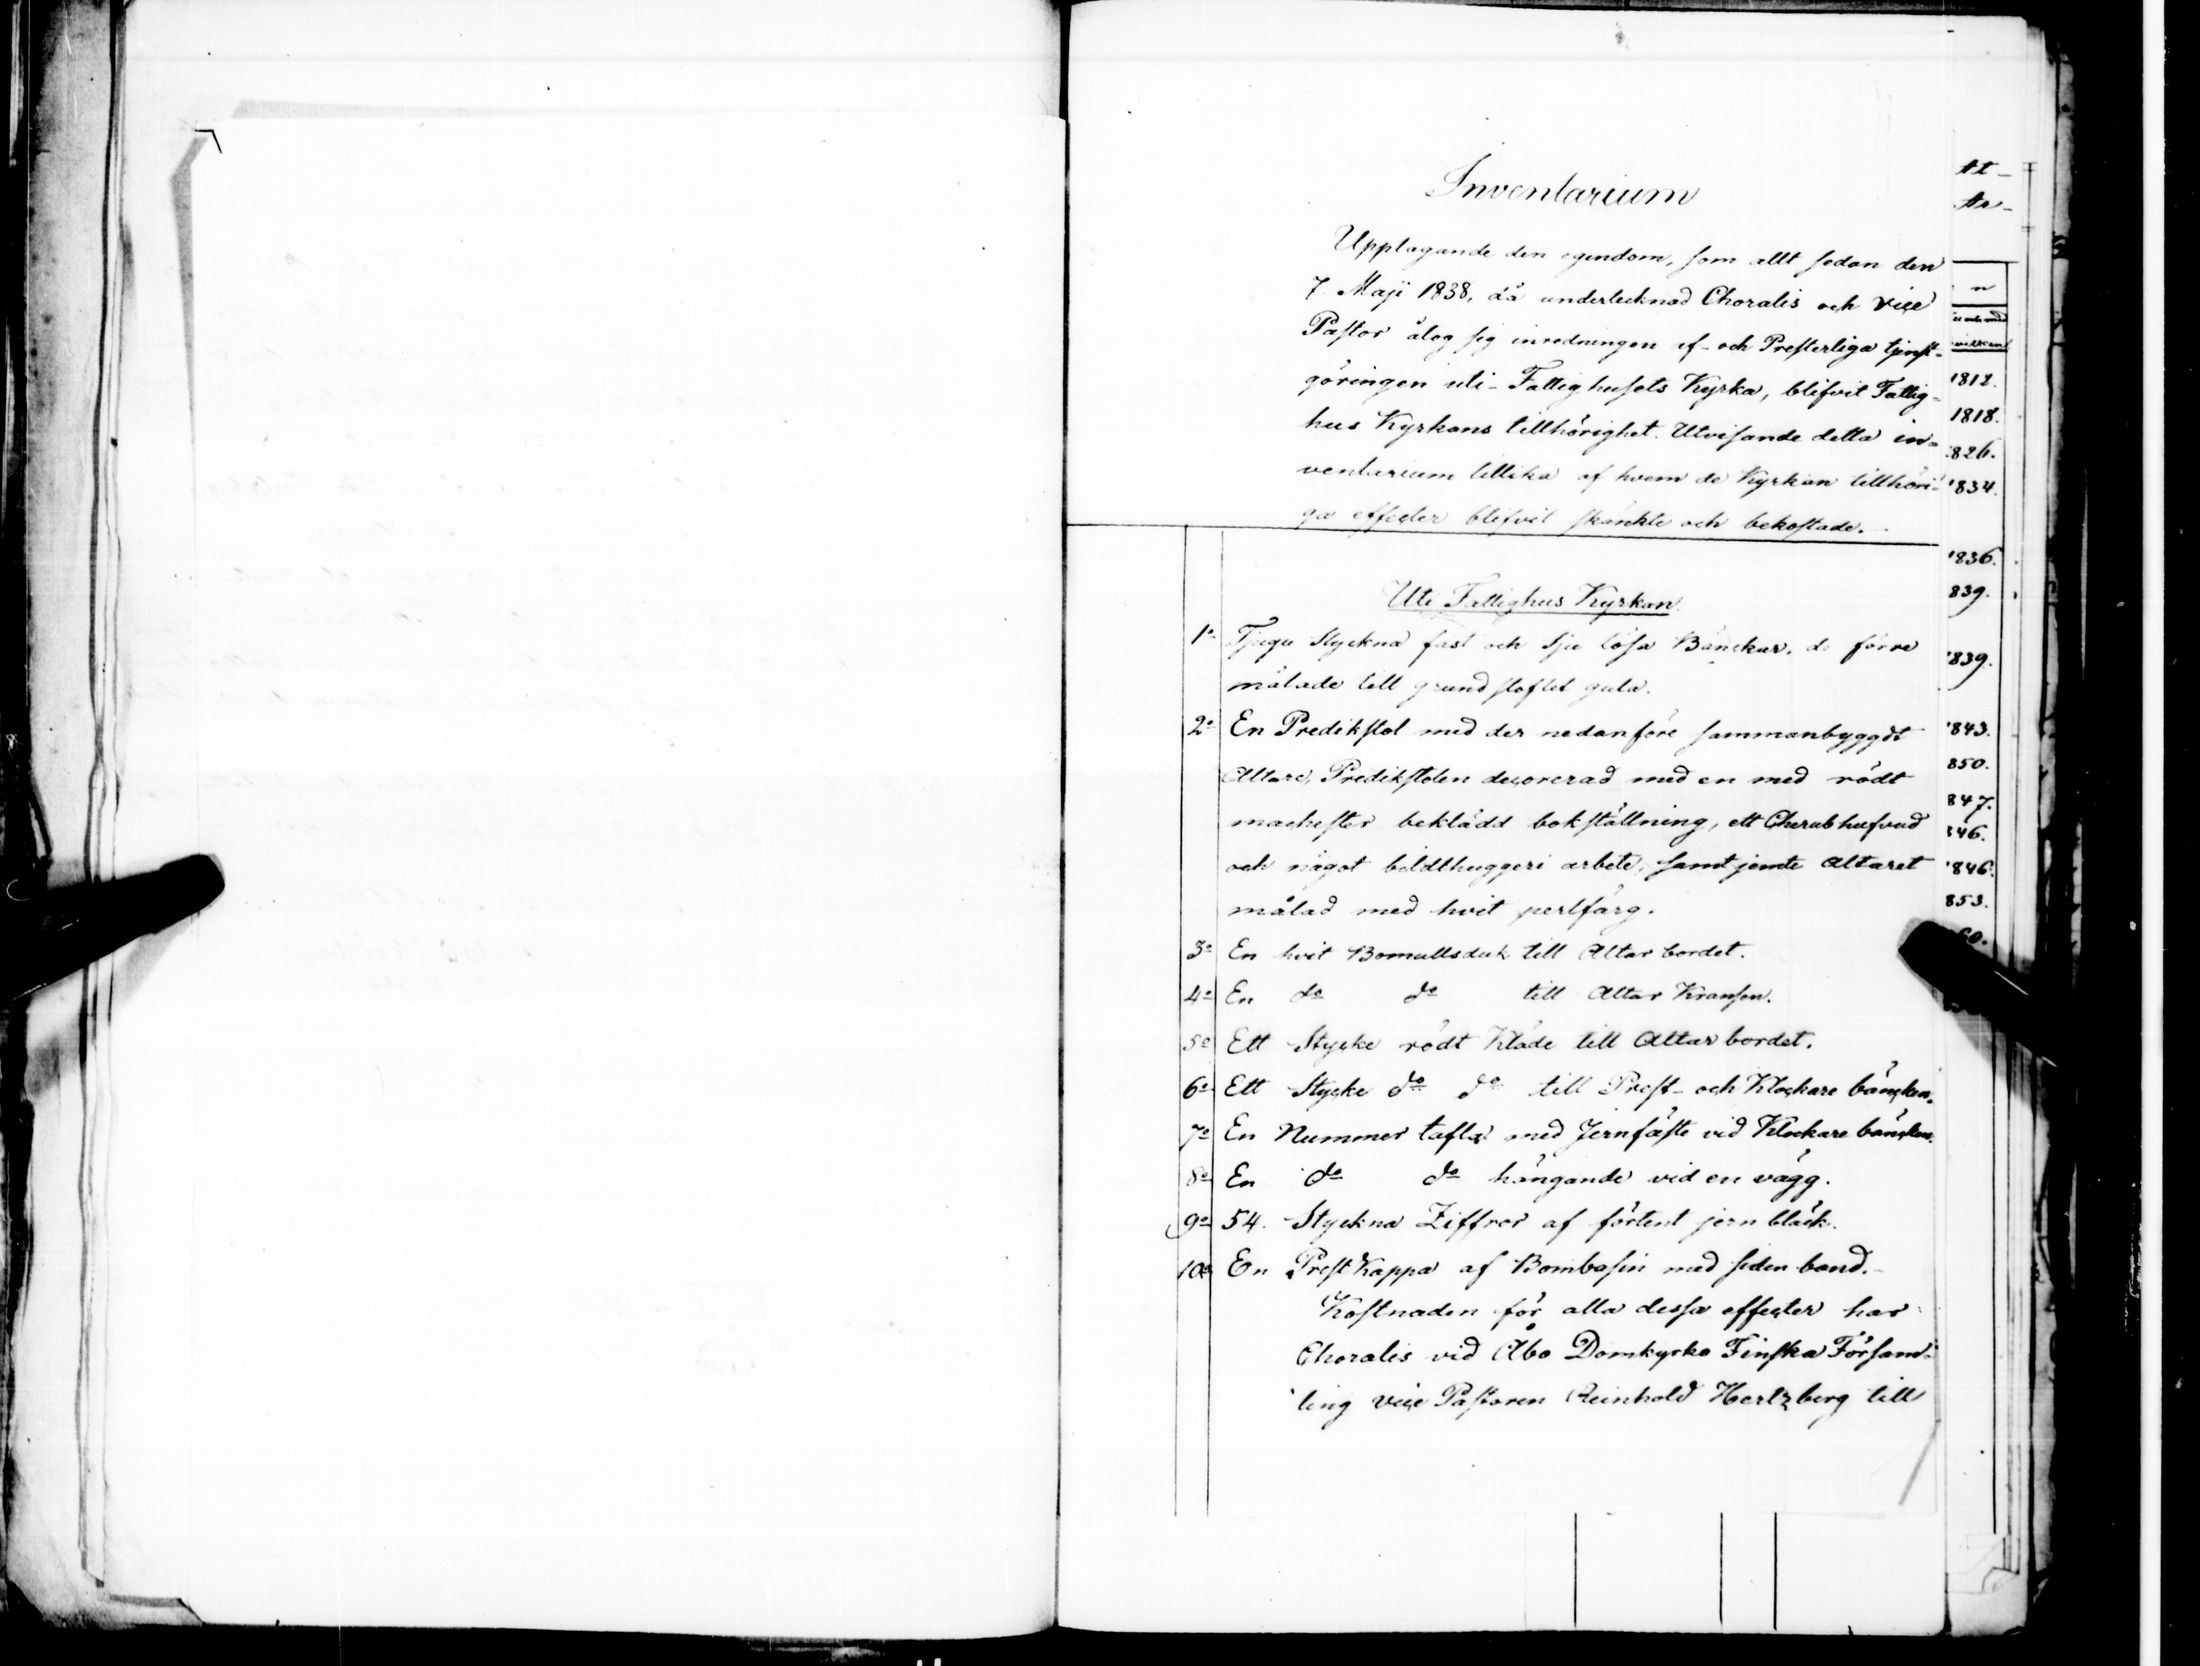 Inventarium
Upptagande den egendom, som allt sedan den
7 Maji 1838, då undertecknad Choralis och vice
Pastor åtog sig inredningen af- och Presterliga tjenst-
göringen uti Fattighusets Kyrka, blifvit Fattig-
hus Kyrkans tillhörighet. Utvisande detta in-
ventarium tillika af hvem de Kyrkan tillhöri-
ga effecter blifvit skänkte och bekostade.
Uti Fattighus Kyrkan
1o Tjugu Styckna fast och sju lösa Bänckar, de förre
målade till grund stoftet gula.
2o En Predikstol med der nedanföre sammanbyggdt
Altare, Predikstolen decorerad med en med rödt
beklädd bokställning, ett Cherubhufvud
och något bildthuggeri arbete, samt jemte Altaret
målad med hvit perlfärg.
3o En hvit Bomullsduk till Altar bordet.
4o En do do till Altar Kransen.
5o Ett Stycke rödt Kläde till Altar bordet.
6o Ett Stycke do do till Prest- och Klockare bäncken.
7o En Nummer tafla med Jernfäste vid Klockare bäncken.
8o En do do hängande vid en vägg.
9o 54. Styckna Ziffror af förtent jern bläck.
10o En Prest Kappa af Bombasin med siden band.-
Kostnaden för alla dessa effecter har
Choralis vid Åbo Domkyrko Finska Försam-
ling vice Pastoren Reinhold Hertzberg till
At-
Ar-
n
1812.
1818.
826.
1834.
1836.
839.
1839.
1843.
850.
847.
846.
1846.
853.
60.